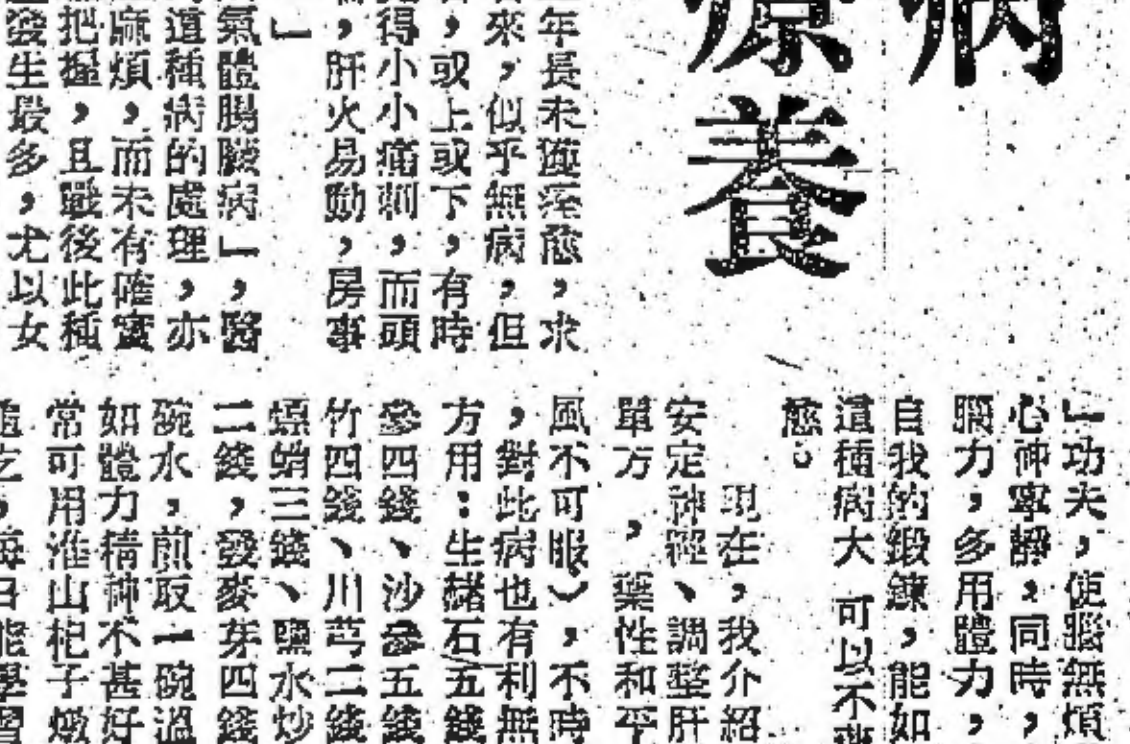 病
療養
年長未獲痊癒，求
來，似乎無病，但
，或上或下，有時
得小小痛刺，而頭
，肝火易動，房事
」
氣體腸臟病」，醫
這種病的處理，亦
麻煩，而未有確實
把握，且戰後此種
發生最多，尤以女
」功夫，使腦無煩
心神寧靜，同時，
腦力，多用體力，
自我的鍛鍊，能如
這種病大 可以不藥
癒。
現在，我介紹
安定神經、調整肝
單方，藥性和平
風不可服），不時
，對此病也有利無
方用：生赭石五錢
參四錢、沙參五錢
竹四錢、川芎二錢
螵蛸三錢、鹽水炒
二錢，發麥芽四錢
碗水，煎取一碗溫
如體力精神不甚好
常可用淮山杞子燉
吃，每日能學習